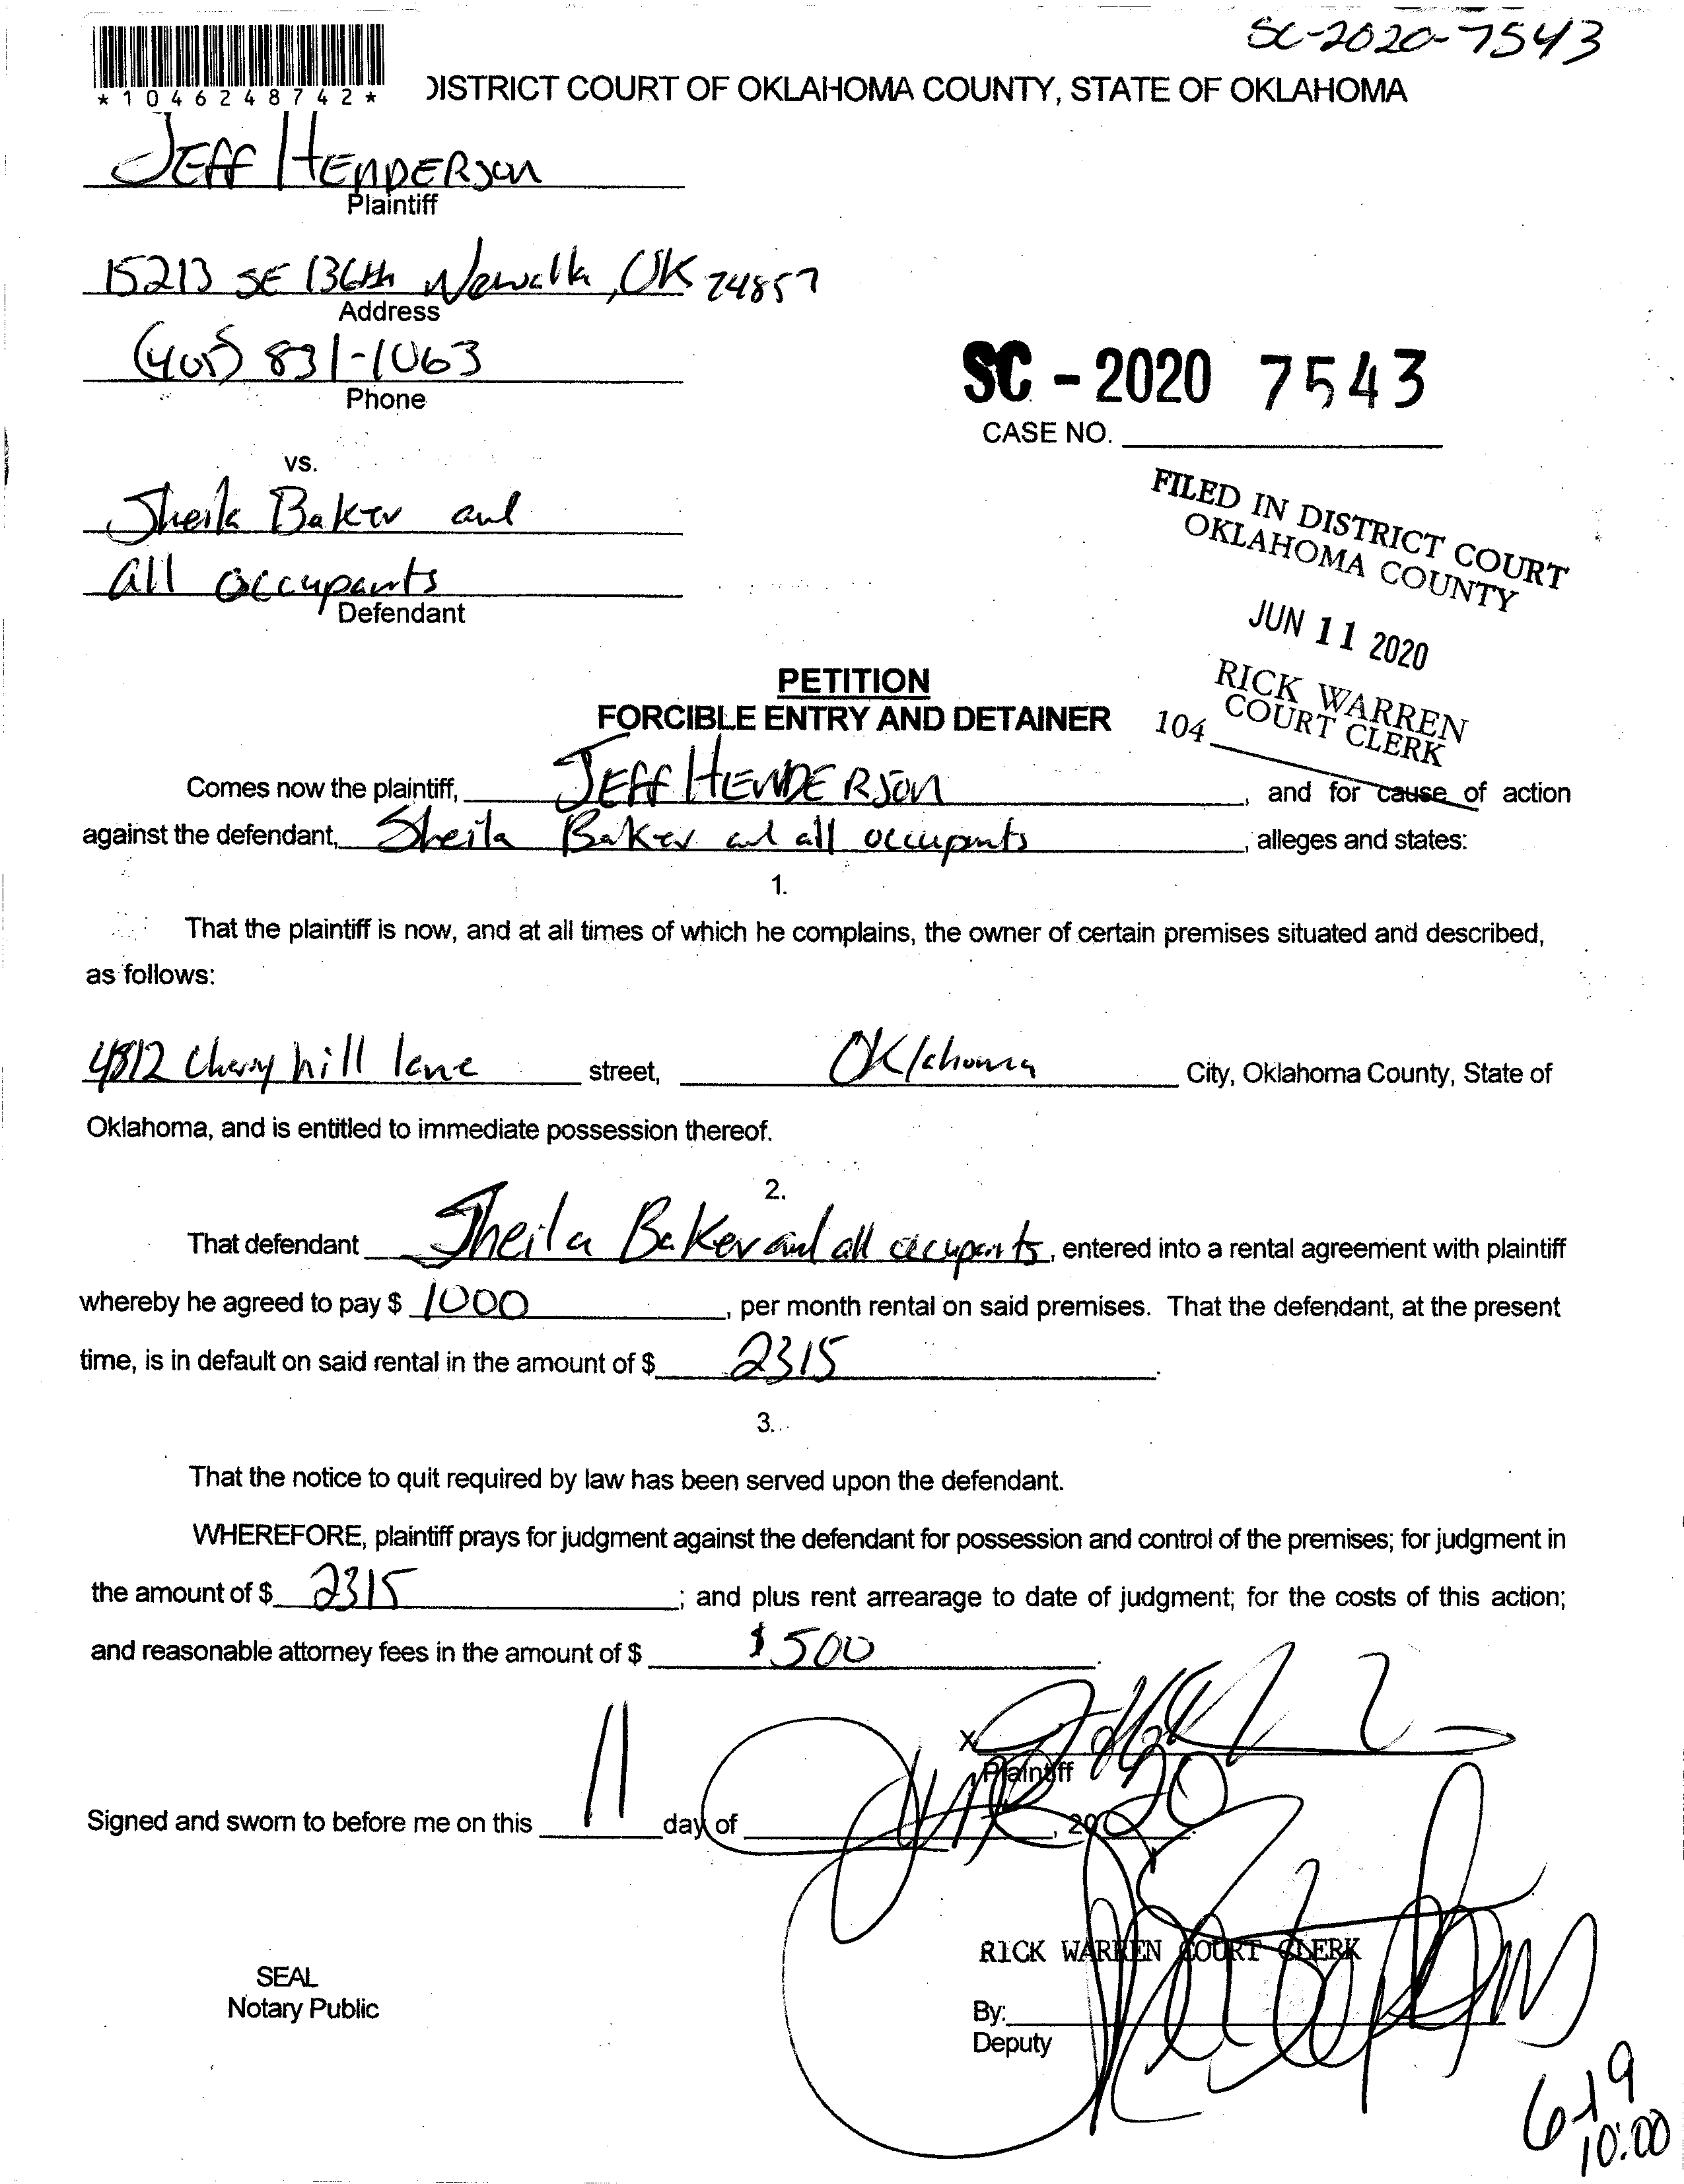 SC-2020-7543
*1046248742*
DISTRICT COURT OF OKLAHOMA COUNTY, STATE OF OKLAHOMA
JEFF HENDERSON
Plaintiff
15213 SE 136th Newalla, OK 74857
Address
(405) 831-1063
Phone
SC - 2020 7543
CASE NO.
vs.
Sheila Baker and
all occupants
Defendant
FILED IN DISTRICT COURT
OKLAHOMA COUNTY
JUN 11 2020
RICK WARREN
COURT CLERK
104
PETITION
FORCIBLE ENTRY AND DETAINER
Comes now the plaintiff, JEFF HENDERSON, and for cause of action
against the defendant, Sheila Baker and all occupants, alleges and states:
1.
That the plaintiff is now, and at all times of which he complains, the owner of certain premises situated and described,
as follows:
4812 Cherry hill lane street, Oklahoma City, Oklahoma County, State of
Oklahoma, and is entitled to immediate possession thereof.
2.
That defendant Sheila Baker and all occupants, entered into a rental agreement with plaintiff
whereby he agreed to pay $ 1000, per month rental on said premises. That the defendant, at the present
time, is in default on said rental in the amount of $ 2315.
3.
That the notice to quit required by law has been served upon the defendant.
WHEREFORE, plaintiff prays for judgment against the defendant for possession and control of the premises; for judgment in
the amount of $ 2315; and plus rent arrearage to date of judgment; for the costs of this action;
and reasonable attorney fees in the amount of $ $500.
X
Plaintiff
Signed and sworn to before me on this 11 day of June, 2020.
RICK WARREN COURT CLERK
SEAL
Notary Public
By:
Deputy
6-19
10:00